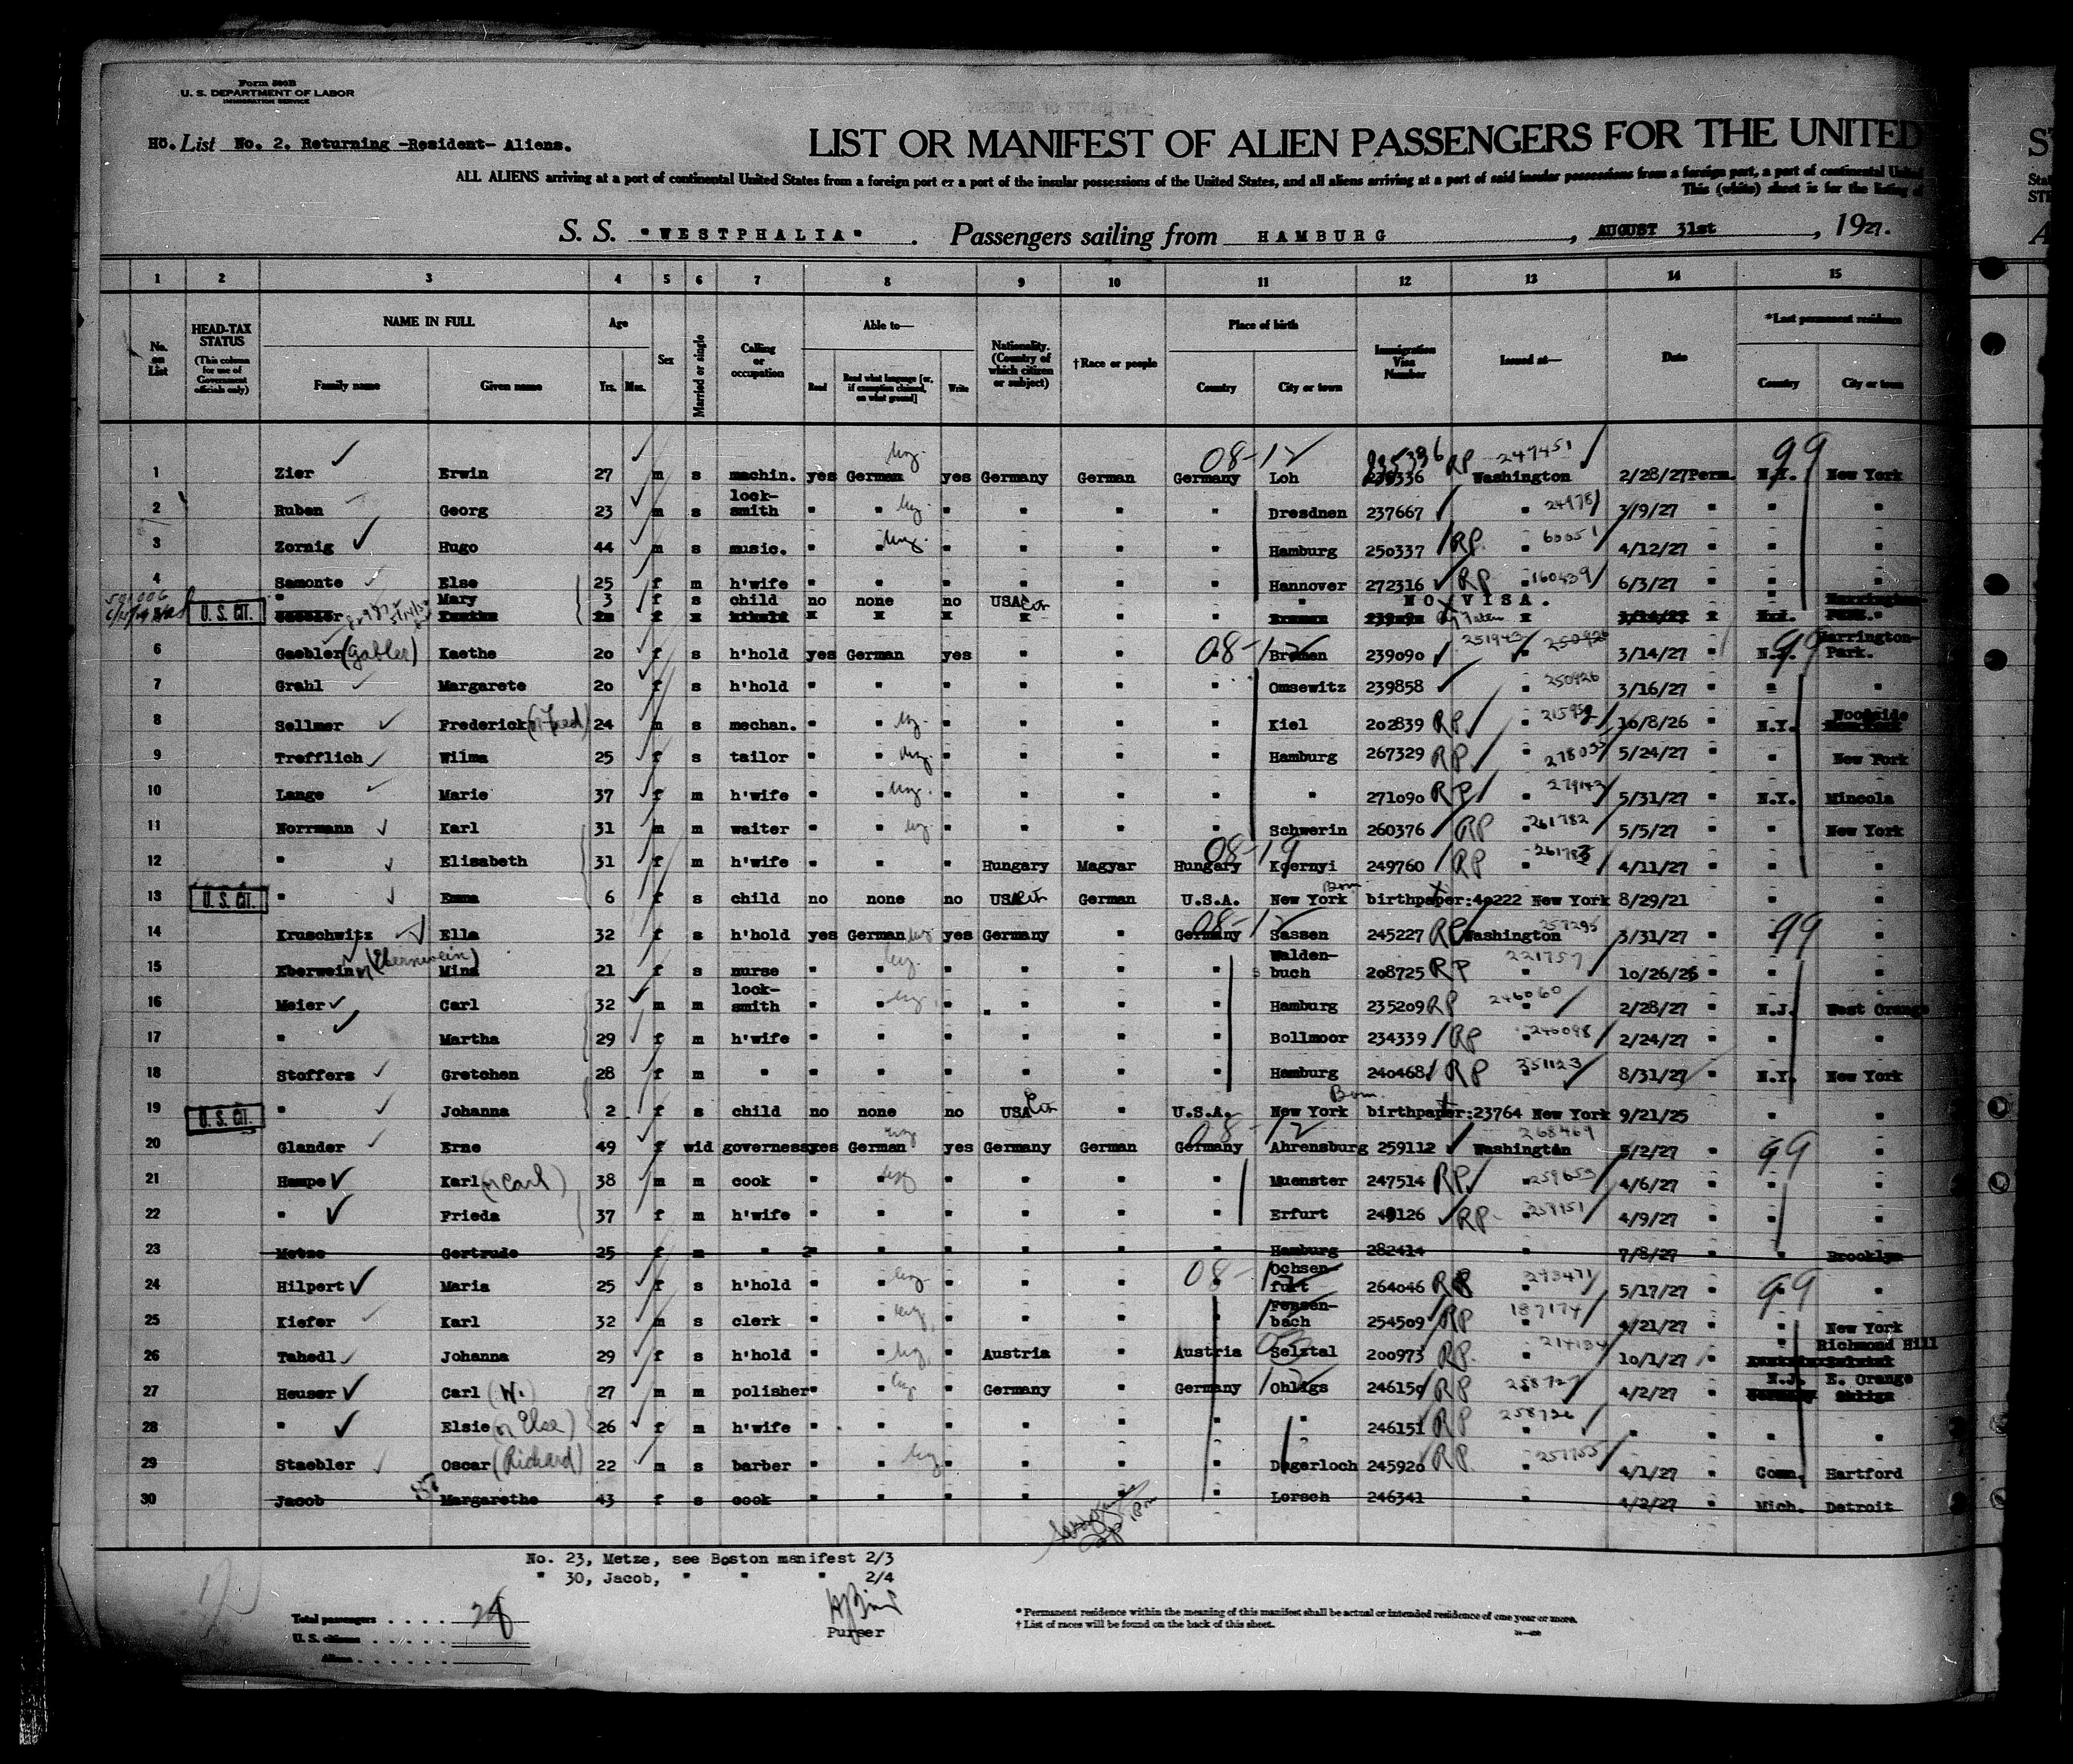 Form 500B
U. S. DEPARTMENT OF LABOR
IMMIGRATION SERVICE
Hö. List No. 2. Returning -Resident- Aliens.
LIST OR MANIFEST OF ALIEN PASSENGERS FOR THE UNITED
ALL ALIENS arriving at a port of continental United States from a foreign port or a port of the insular possessions of the United States, and all aliens arriving at a port of said insular possessions from a foreign port, a port of continental
This (white) sheet is for the listing of
S. S. "WESTPHALIA". Passengers sailing from HAMBURG, AUGUST 31st, 1927.
1 2 3 4 5 6 7 8 9 10 11 12 13 14 15
No. on List
HEAD-TAX STATUS (This column for use of Government officials only)
NAME IN FULL Family name Given name
Age Yrs. Mos.
Sex
Married or single
Calling or occupation
Able to— Read Read what language [or, if exemption claimed, on what ground] Write
Nationality. (Country of which citizen or subject)
†Race or people
Place of birth Country City or town
Immigration Visa Number
Issued at—
Date
*Last permanent residence Country City or town
08-12 99
1 Zier Erwin 27 m s machin. yes German yes Germany German Germany Loh 235336 RP 247451 Washington 2/28/27 Perm. N.Y. New York
2 Ruben Georg 23 m s lock-smith " " " " " " Dresdnen 237667 " 24978 3/9/27 " " "
3 Zornig Hugo 44 m s music. " " " " " " Hamburg 250337 RP " 60051 4/12/27 " " "
4 Samonte Else 25 f m h'wife " " " " " " Hannover 272316 RP " 160439 6/3/27 " " "
U. S. CIT. " Mary 3 f s child no none no USA Cit " " NO VISA.
6 Gaebler (Gabler) Kaethe 20 f s h'hold yes German yes " " " 08-12 Bremen 239090 251943 250926 3/14/27 " N.J. 99 Harrington-Park.
7 Grahl Margarete 20 f s h'hold " " " " " " Omsewitz 239858 " 250926 3/16/27 " " "
8 Sellmer Frederick (or Fred) 24 m s mechan. " " " " " " Kiel 202839 RP " 10/8/26 " N.Y. Woodside
9 Trefflich Wilma 25 f s tailor " " " " " " Hamburg 267329 RP " 5/24/27 " " New York
10 Lange Marie 37 f m h'wife " " " " " " " 271090 RP " 279143 5/31/27 " N.Y. Mineola
11 Norrmann Karl 31 m m waiter " " " " " " Schwerin 260376 RP " 261782 5/5/27 " " New York
12 " Elisabeth 31 f m h'wife " " " Hungary Magyar Hungary 08-19 Koernyi 249760 RP " 261783 4/11/27 " " "
13 U. S. CIT. " Emma 6 f s child no none no USA Cit German U.S.A. New York Born birthpaper:40222 New York 8/29/21
14 Kruschwitz Ella 32 f s h'hold yes German yes Germany " Germany 08-12 Sassen 245227 RP Washington 257295 3/31/27 " 99 "
15 Eberwein or (Ebernwein) Mina 21 f s nurse " " " " " " Walden-buch 208725 RP 221757 " 10/26/26 " " "
16 Meier Carl 32 m m lock-smith " " " " " " Hamburg 235209 RP 246060 " 2/28/27 " N.J. West Orange
17 " Martha 29 f m h'wife " " " " " " Bollmoor 234339 RP " 246098 2/24/27 " " "
18 Stoffers Gretchen 28 f m " " " " " " " Hamburg 240468 RP 351123 " 8/31/27 " N.Y. New York
19 U. S. CIT. " Johanna 2 f s child no none no USA Cit " U.S.A. New York Born birthpaper:23764 New York 9/21/25 " "
20 Glander Erne 49 f wid governess yes German yes Germany German Germany 08-12 Ahrensburg 259112 268469 Washington 5/2/27 " 99 "
21 Hampe Karl (or Carl) 38 m m cook " " " " " " Muenster 247514 RP " 259653 4/6/27 " " "
22 " Frieda 37 f m h'wife " " " " " " Erfurt 249126 RP " 4/9/27 " " "
23 Metze Gertrude 25 f m " " " " " " " Hamburg 282414 " 7/8/27 " " Brooklyn
24 Hilpert Maria 25 f s h'hold " " " " " 08-12 Ochsen-furt 264046 RP 273471 " 5/17/27 " 99 "
25 Kiefer Karl 32 m s clerk " " " " " " Fensen-bach 254509 RP 187174 " 4/21/27 " " New York
26 Tahedl Johanna 29 f s h'hold " " " Austria " Austria Selztal 200973 RP " 10/1/27 " Richmond Hill
27 Heuser Carl (W.) 27 m m polisher " " " Germany " Germany Ohligs 246150 RP 258727 " 4/2/27 " N.J. E. Orange
28 " Elsie (or Else) 26 f m h'wife " " " " " " " 246151 RP 258726 " " " " "
29 Staebler Oscar (Richard) 22 m s barber " " " " " " Degerloch 245920 RP " 257755 4/1/27 " Conn. Hartford
30 Jacob Margarethe 43 f s cook " " " " " " Lorsch 246341 " 4/2/27 " Mich. Detroit
No. 23, Metze, see Boston manifest 2/3
" 30, Jacob, " " " 2/4
Total passengers . . . . 28
U. S. citizens . . . . .
Aliens . . . . . .
Purser
* Permanent residence within the meaning of this manifest shall be actual or intended residence of one year or more.
† List of races will be found on the back of this sheet.